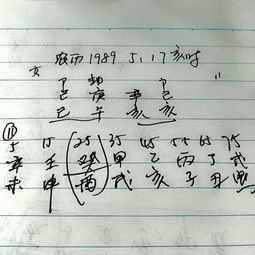 农历1989 5.17 亥时
女
己 庚 辛 己
巳 午 亥 亥
⑪
5 15 25 35 45 55 65 75
辛 壬 癸 甲 乙 丙 丁 戊
未 申 酉 戌 亥 子 丑 寅